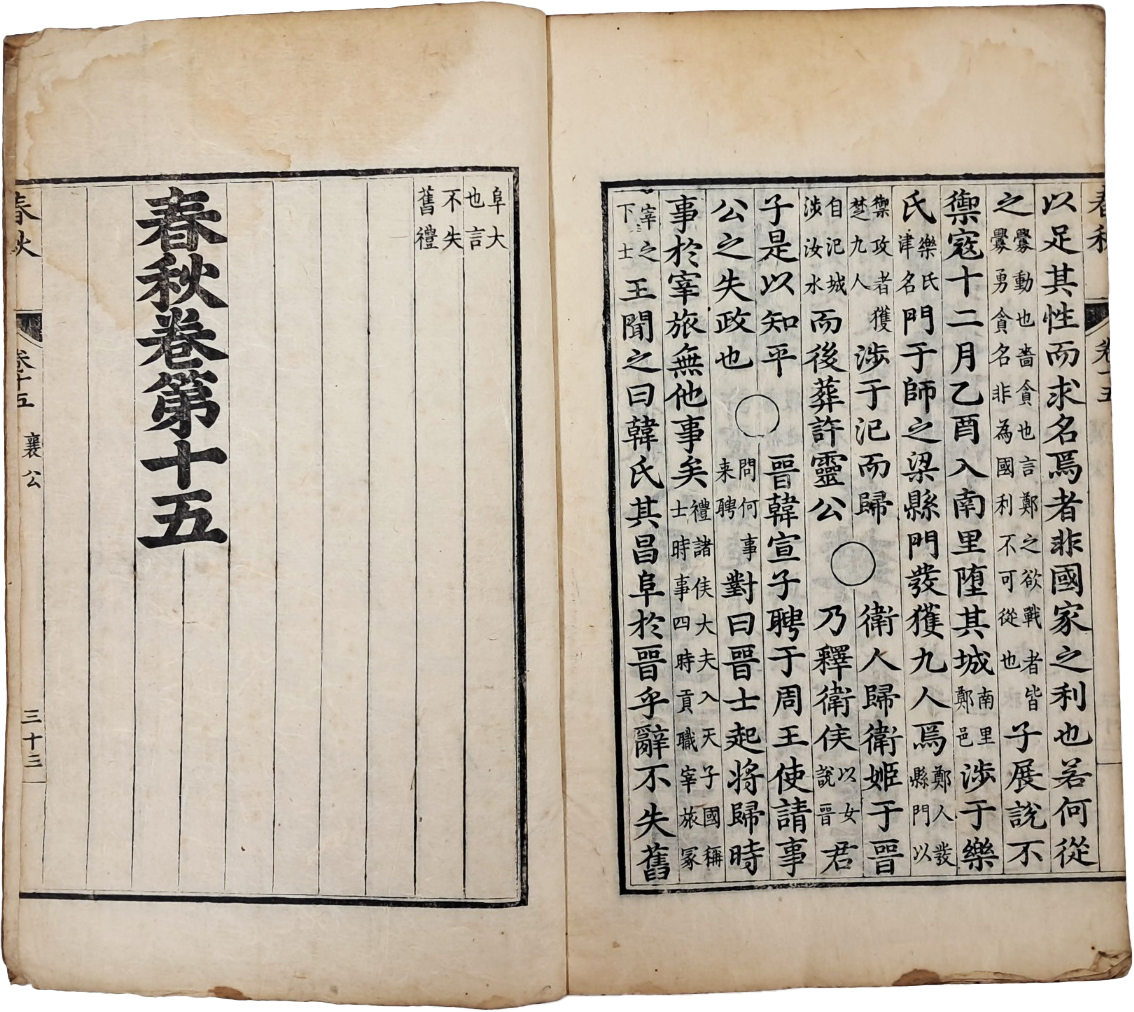 春秋 卷十五
以足其性而求名焉者非國家之利也若何從
之釁動也嗇貪也言鄭之欲戰者皆釁勇貪名非為國利不可從也子展說不
禦寇十二月乙酉入南里墮其城南里鄭邑涉于樂
氏樂氏津名門于師之梁縣門發獲九人焉鄭人發縣門以
禦攻者獲楚九人涉于汜而歸 衛人歸衛姬于晉
自汜城涉汝水而後葬許靈公 乃釋衛侯以女說晉君
子是以知平 晉韓宣子聘于周王使請事
公之失政也 問何事来聘對曰晉士起將歸時
事於宰旅無他事矣禮諸侯大夫入天子國稱士時事四時貢職宰旅冢
宰之下士王聞之曰韓氏其昌阜於晉乎辭不失舊
阜大
也言
不失
舊禮
春秋卷第十五
春秋 卷十五 襄公 三十三